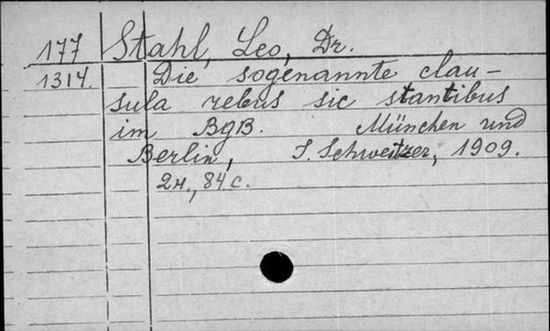 177 Stahl, Leo, Dr.
1314. Die sogenannte clau-
sula rebus sic stantibus
im BgB. München und
Berlin, J. Schweitzer, 1909.
2н., 84 с.